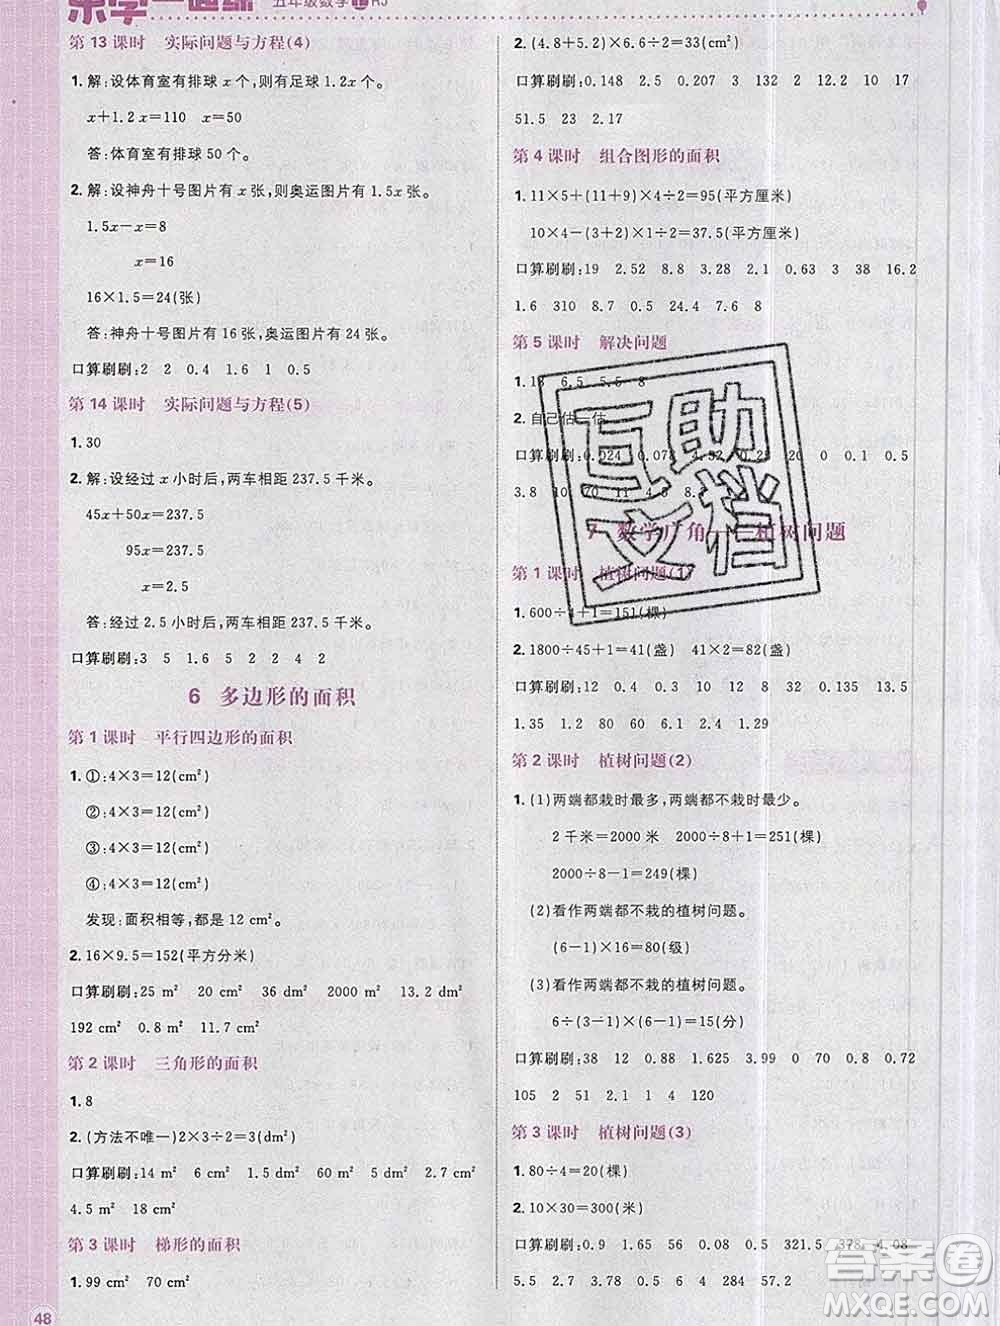 五年级数学上 RJ
第 13 课时 实际问题与方程(4)
1. 解:设体育室有排球 x 个,则有足球 1.2x 个。
x+1.2x=110 x=50
答:体育室有排球 50 个。
2. 解:设神舟十号图片有 x 张,则奥运图片有 1.5x 张。
1.5x-x=8
x=16
16×1.5=24(张)
答:神舟十号图片有 16 张,奥运图片有 24 张。
口算刷刷:2 2 0.4 1.6 1 0.5
第 14 课时 实际问题与方程(5)
1. 30
2. 解:设经过 x 小时后,两车相距 237.5 千米。
45x+50x=237.5
95x=237.5
x=2.5
答:经过 2.5 小时后,两车相距 237.5 千米。
口算刷刷:3 5 1.6 5 2 2 4 2
6 多边形的面积
第 1 课时 平行四边形的面积
1. ①:4×3=12(cm²)
②:4×3=12(cm²)
③:4×3=12(cm²)
④:4×3=12(cm²)
发现:面积相等,都是 12 cm²。
2. 16×9.5=152(平方分米)
口算刷刷:25 m² 20 cm² 36 dm² 2000 m² 13.2 dm²
192 cm² 0.8 m² 11.7 cm²
第 2 课时 三角形的面积
1. 8
2. (方法不唯一)2×3÷2=3(cm²)
口算刷刷:14 m² 6 cm² 4 m² 5 dm² 2.7 cm²
4.5 m² 24 dm² 9 cm²
第 3 课时 梯形的面积
1. 99 cm² 70 cm²
48
2. (4.8+5.2)×6.6÷2=33(cm²)
口算刷刷:0.148 2.5 0.207 3 132 2 10.2
51.5 23 2.17
第 4 课时 组合图形的面积
1. 11×5+(11+9)×4÷2=95(平方厘米)
10×4-(3+2)×1÷2=37.5(平方厘米)
口算刷刷:19 2.52 8.8 3.28 2.1 0.63 3 38 16.2
1.6 310 8.7 0.5 24.4 7.6 8
第 5 课时 解决问题
1. 18 6.5 5.5 8
2. 自己估一估
口算刷刷:0.024 0.078 4.52 0.25 20 0 0.81
3.8 10 70 11 4.3 8.5
7 数学广角 植树问题
第 1 课时 植树问题(1)
1. 600÷4+1=151(棵)
2. 1800÷45+1=41(盏) 41×2=82(盏)
口算刷刷:100 14 2.6 12 0.22 0.136 13.5
1.35 1.2 80 60 6.1 2.4 1.29
第 2 课时 植树问题(2)
1. (1)两端都栽时最多,两端都不栽时最少。
2 千米=2000 米 2000÷8+1=251(棵)
2000÷8-1=249(棵)
(2)看作两端都不栽的植树问题。
(6-1)×16=80(级)
(3)看作两端都不栽的植树问题。
6÷(3-1)×(6-1)=15(分)
口算刷刷:38 12 0.88 1.625 3.99 0 70 0.8 0.72
105 2 51 2.1 4 120
第 3 课时 植树问题(3)
1. 80÷4=20(棵)
2. 10×30=300(米)
口算刷刷:0.9 1.65 2.56 0.91 300 321.5 378 4.08
5.5 2.7 65 4 6 284 57.2
互助
文档
答案圈
MXQE.COM